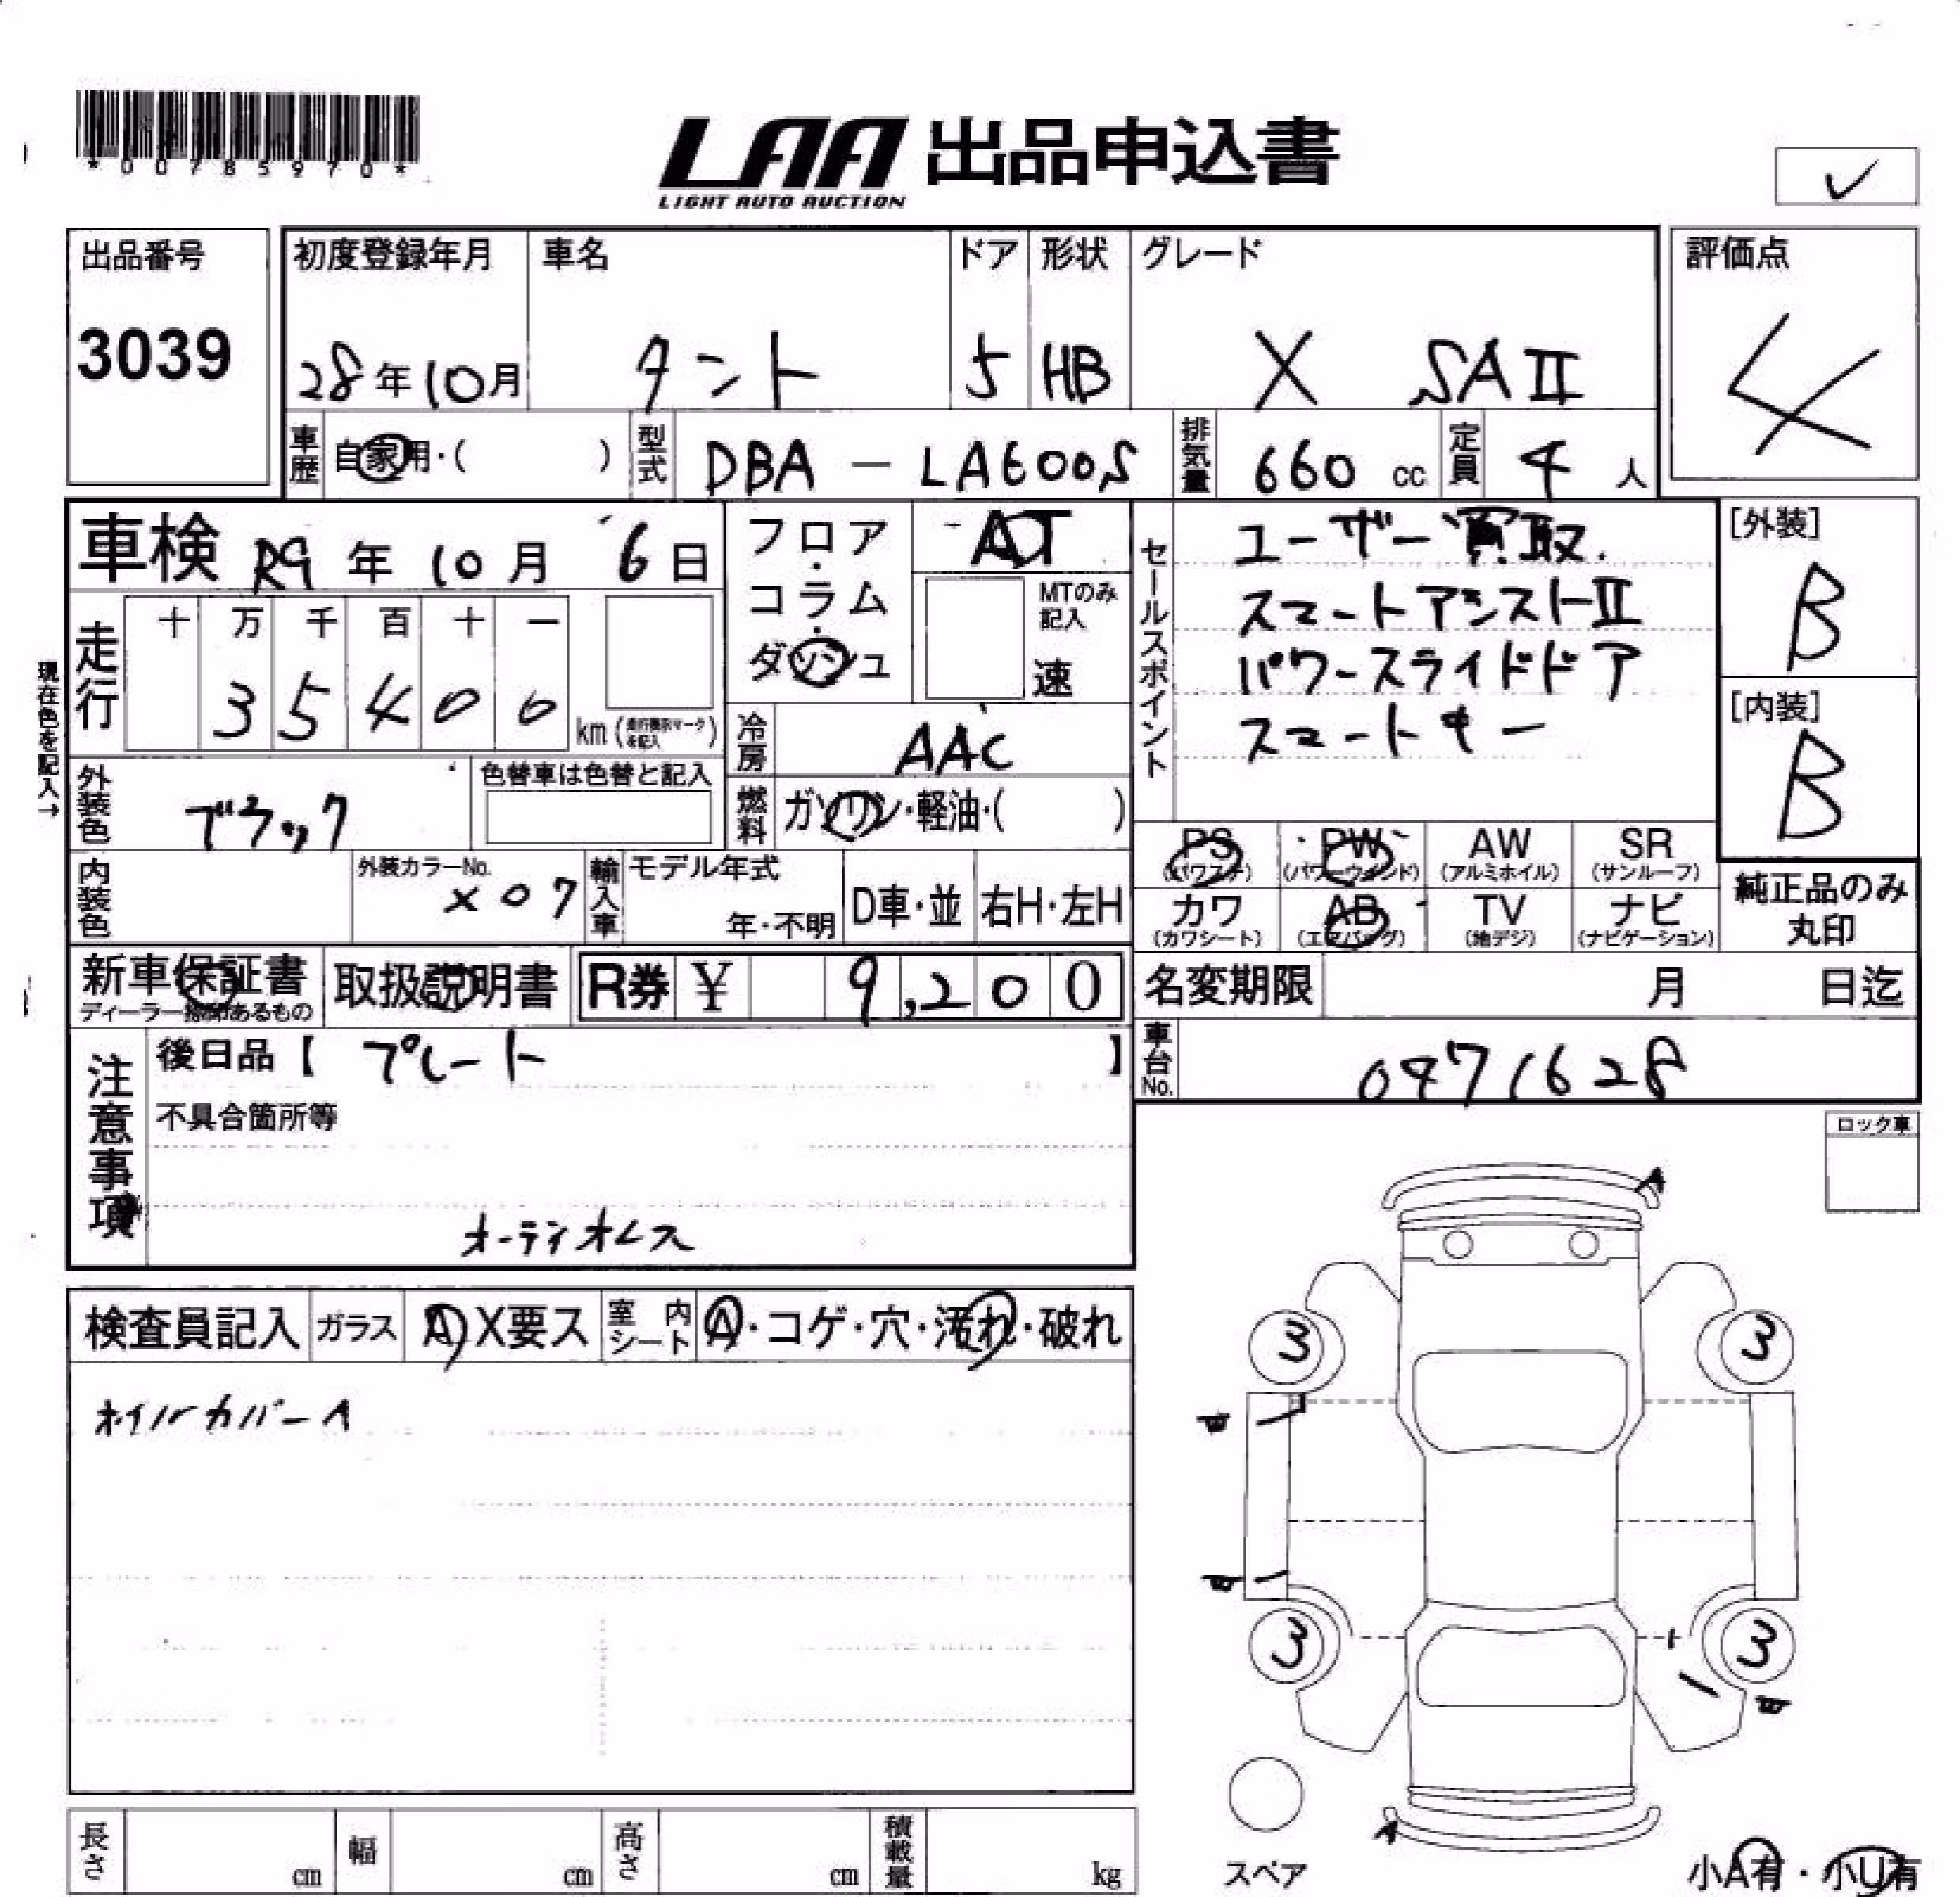 *00785970*
LAA 出品申込書
LIGHT AUTO AUCTION
✓
出品番号
3039
初度登録年月 車名 ドア 形状 グレード
28年10月 タント 5 HB X SAⅡ
評価点
4
車歴 自家用・( ) 型式 DBA-LA600S 排気量 660 cc 定員 4 人
車検 R9年 10月 6日
フロア・コラム・ダッシュ
AT
MTのみ記入
速
現在色を記入→
走行 十 万 千 百 十 一
3 5 4 0 0 km (走行表示マークを記入)
冷房 AAC
セールスポイント
ユーザー買取.
スマートアシストⅡ
パワースライドドア
スマートキー
[外装]
B
[内装]
B
外装色 ブラック 色替車は色替と記入
燃料 ガソリン・軽油・( )
内装色 外装カラーNo. X07 輸入車 モデル年式 年・不明 D車・並 右H・左H
PS (パワステ) PW (パワーウィンド) AW (アルミホイル) SR (サンルーフ)
カワ (カワシート) AB (エアバッグ) TV (地デジ) ナビ (ナビゲーション)
純正品のみ丸印
新車保証書
ディーラー捺印あるもの
取扱説明書 R券 ¥ 9,200
名変期限 月 日迄
注意事項
後日品【 プレート 】
不具合箇所等
オーディオレス
車台No. 0471628
ロック車
検査員記入 ガラス A X要ス 室内シート A・コゲ・穴・汚れ・破れ
ホイルカバーA
A
3 3
3 3
A
スペア
小A有・小U有
長さ cm 幅 cm 高さ cm 積載量 kg